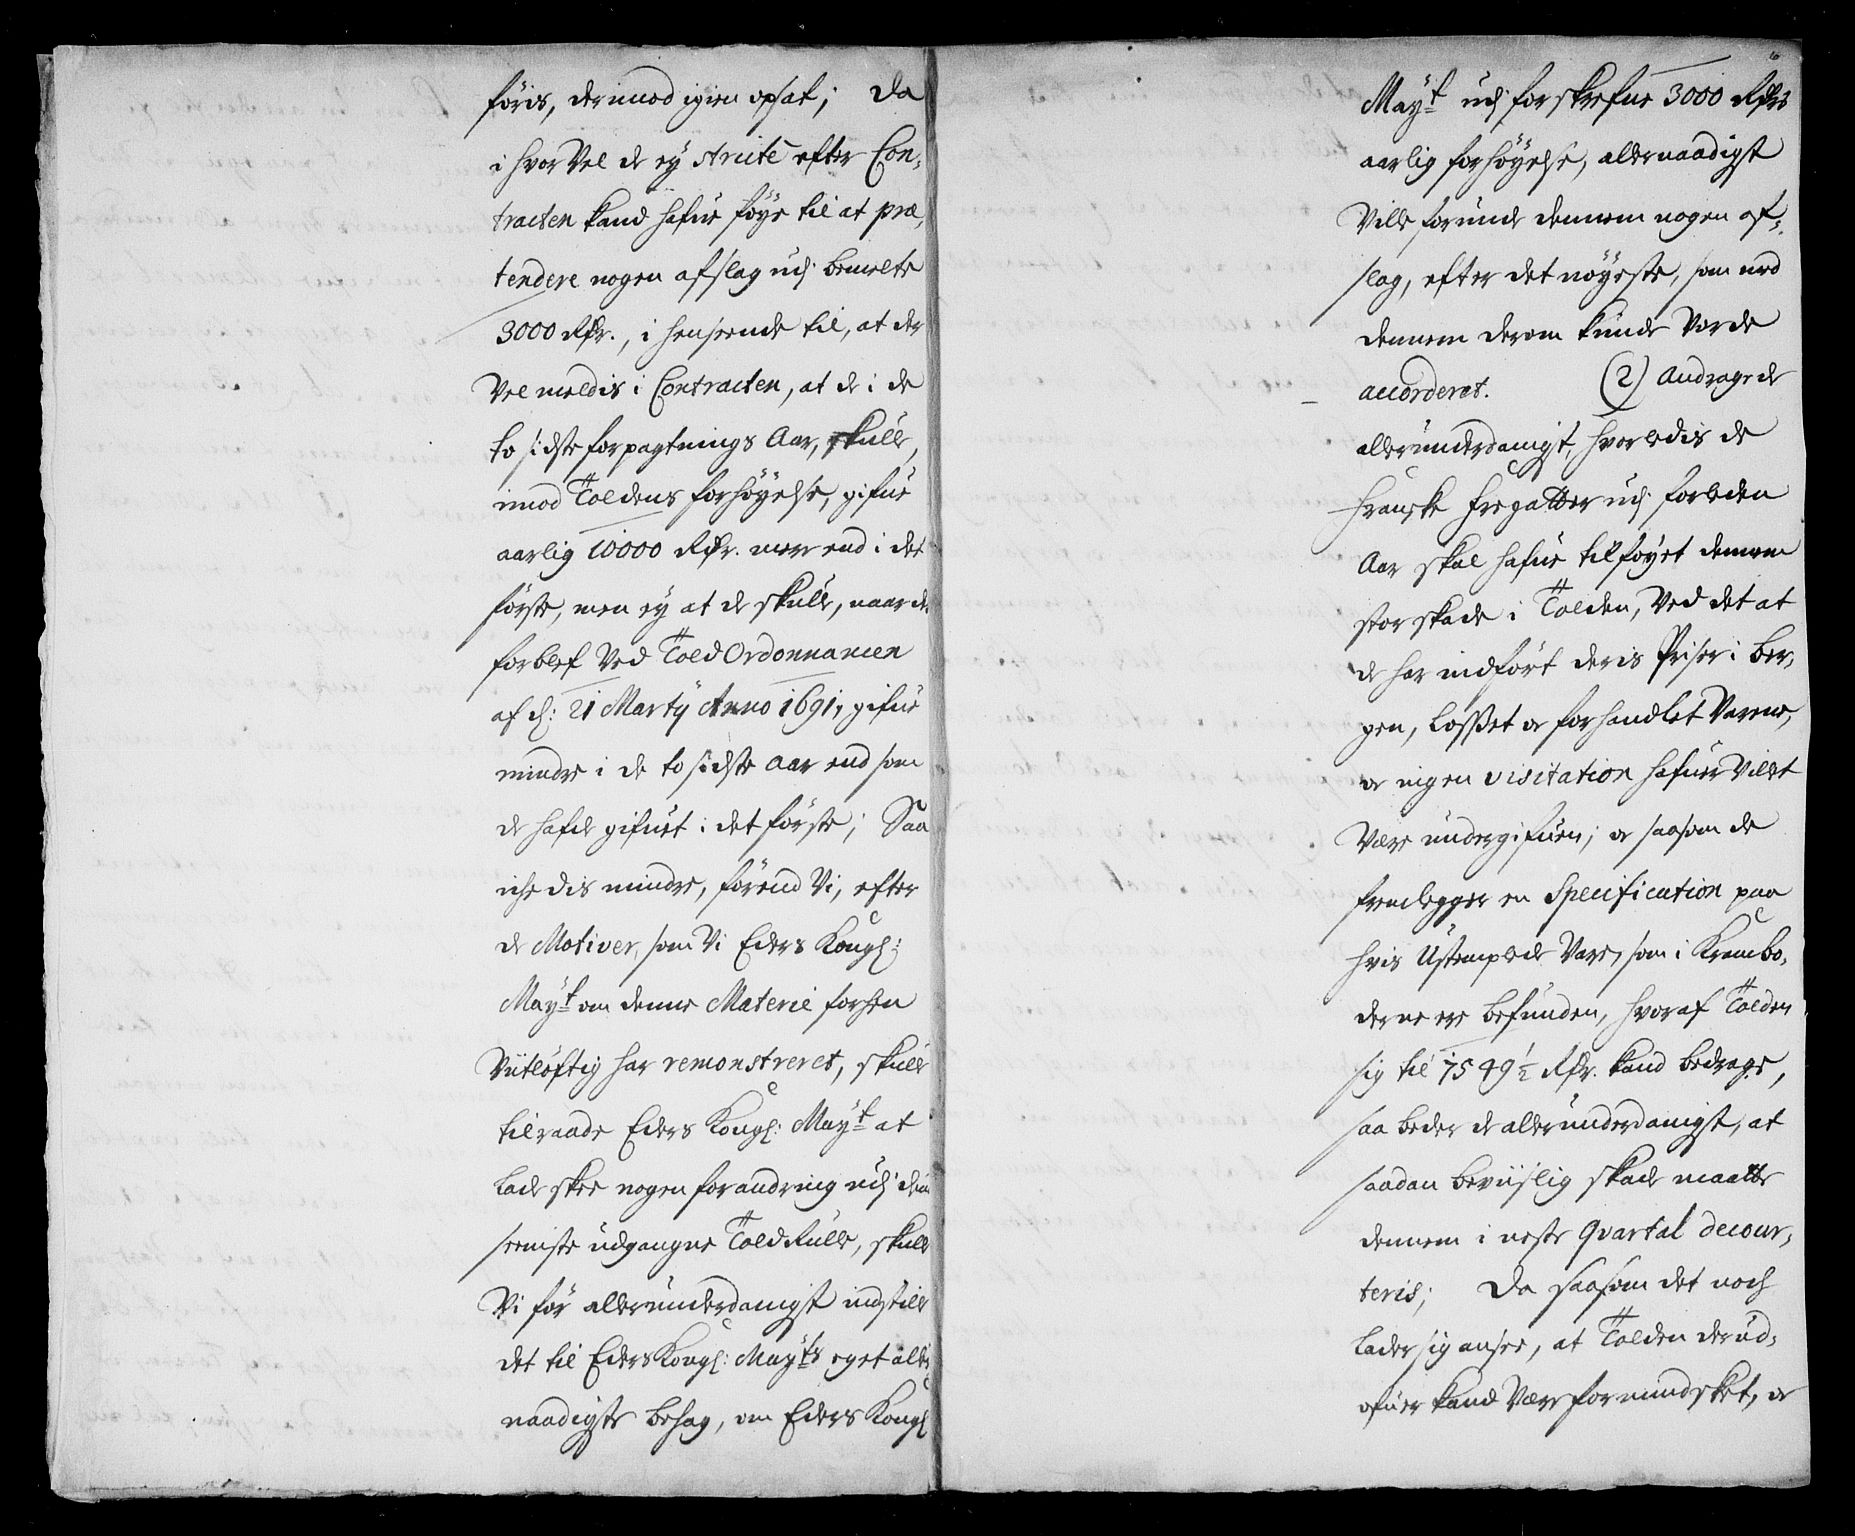 föris, derimod igien opsat; Da
i hvor Vel de ey stricte efter Con-
tracten kand hafue föye til at præ-
tendere nogen afslag udj bemelte
3000 Rdr., i henseende til, at der
Vel meldis i Contracten, at de i de
to sidste forpagtnings Aar, skulle,
imod Toldens forhöyelse, gifue
aarlig 10000 Rdr. mere end i det
förste, men ey at de skulle, naar det
forblef Ved Told Ordonnancen
af d: 21 Martÿ Anno 1691, gifue
mindre i de to sidste Aar end som
de hafde gifuet i det förste; Saa
iche dis mindre, förend Vi, efter
de Motiver, som Vi Eders Kongl:
Mayt om denne Materie forhen
Viitlöftig har remonstreret, skulle
tilraade Eders Kongl: Mayt at
lade skee nogen forandring udj den
seeniste udgangne Told Rulle, skulle
Vi för allerunderdanigst indstille
det til Eders Kongl: Mayts eget aller-
naadigste behag, om Eders Kongl
Mayt udj forskrefne 3000 Rdrs
aarlig forhöyelse, allernaadigst
Ville forunde dennem nogen af-
slag, efter det nöyeste, som med
dennem derom kunde Vorde
accorderet. (2) Andragede
allerunderdanigst, hvorledis de
Franske Fregatter udj forleden
Aar skal hafue tilföyet dennem
stor skade i Tolden, Ved det at
de har indfört deris Priser i Ber-
gen, losset og forhandlet Varene,
og ingen visitation hafuer Villet
Være undergifuen; og saasom de
fremlegger en Specification paa
hvis Ustemplede Vare, som i Krambo-
derne ere befunden, hvoraf Tolden
sig til 7549½ Rdr. kand bedrage,
saa beder de allerunderdanigst, at
saadan beviislig skade maatte
dennem i neste Qvartal decour-
teris; Da saasom det noch
lader sig ansee, at Tolden derud-
ofuer kand Være formindsket, og